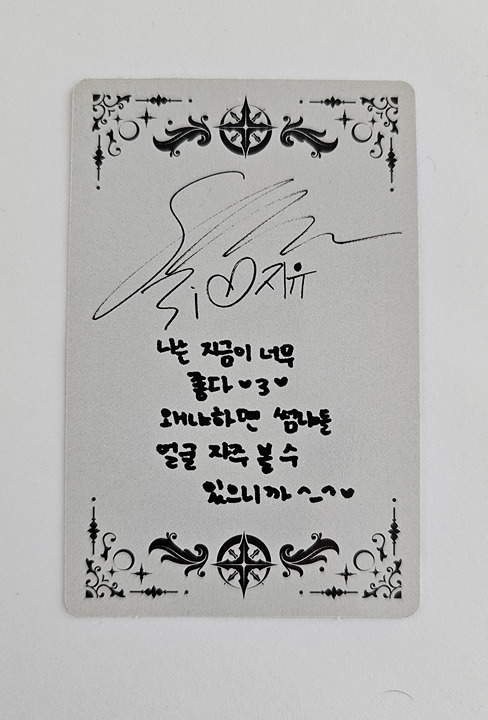 지유
나는 지금이 너무
좋다 ♥3♥
왜냐하면 썸냐들
얼굴 자주 볼 수
있으니까 ^_^♥